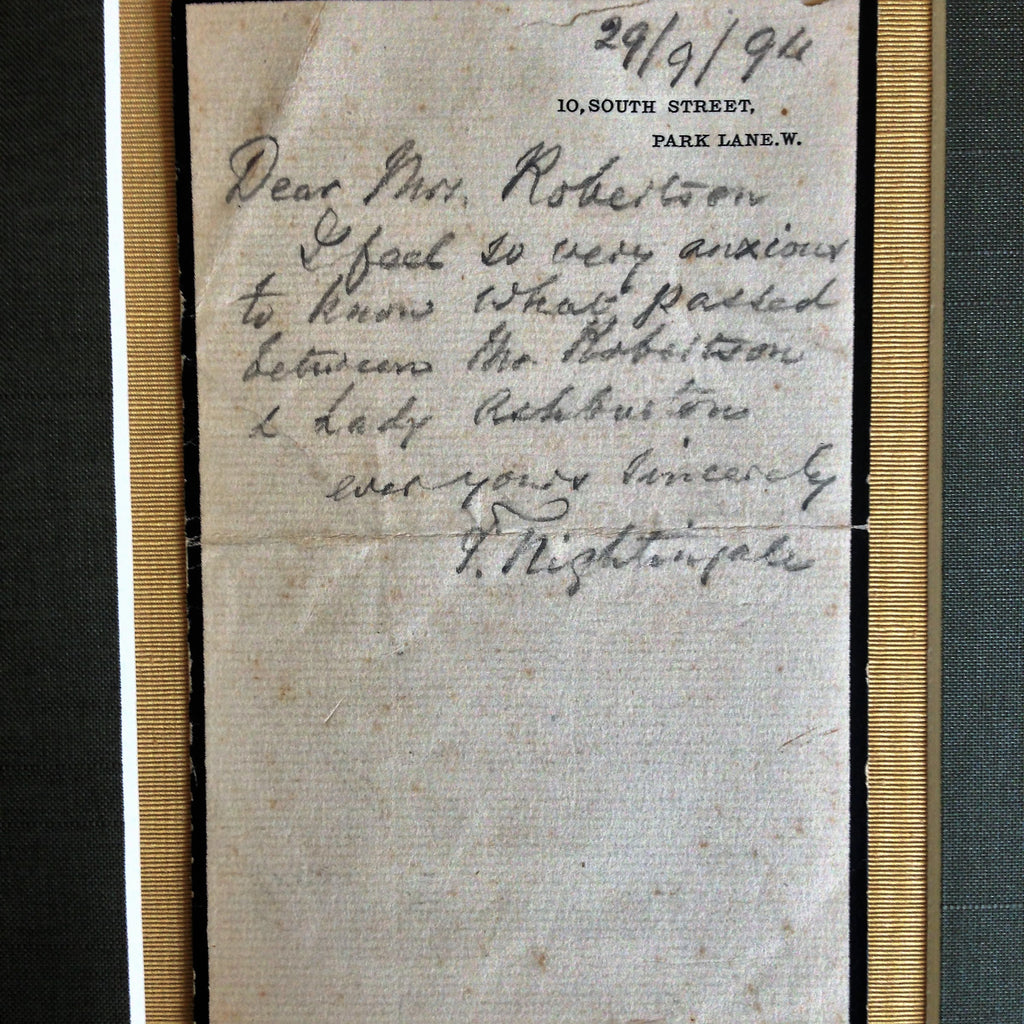 29/9/94
10, SOUTH STREET,
PARK LANE. W.
Dear Mrs. Robertson
I feel so very anxious
to know what passed
between Mr. Robertson
& Lady Ashburton
ever yours sincerely
F. Nightingale